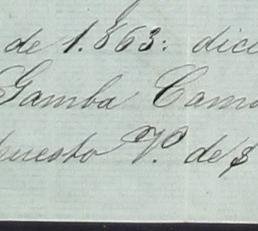 de 1.863: dici
Gamba Cama
puesto V. de $